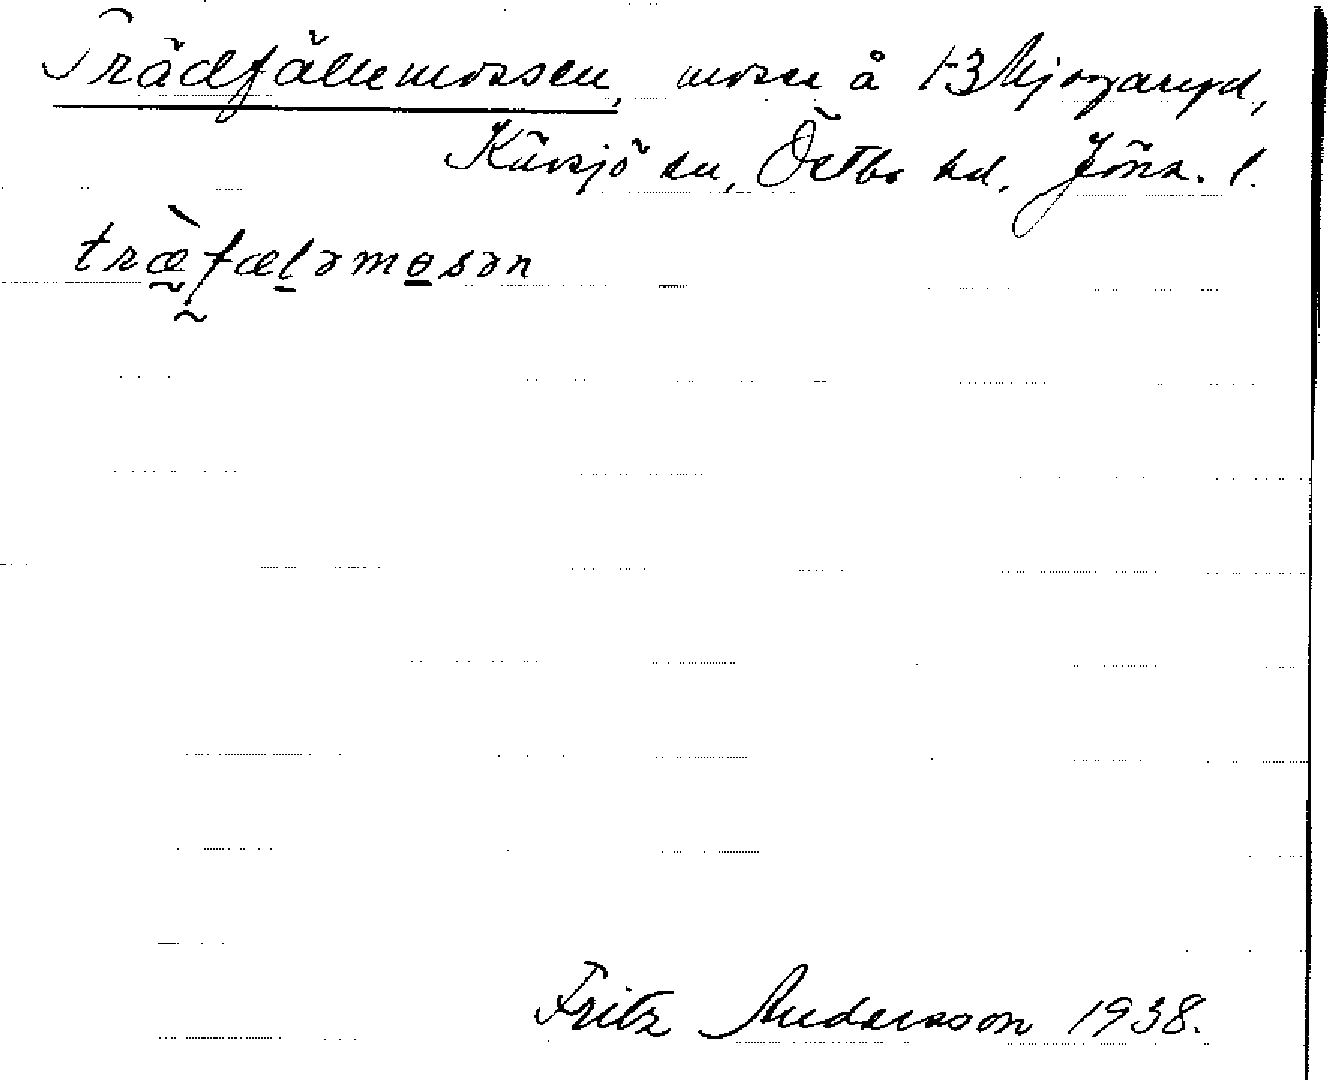 Trädfällemossen, mosse å 1-3 Mjogaryd,
Kävsjö sn, Östbo hd, Jönk. l.
træ̀fæləmosən
Fritz Andersson 1938.